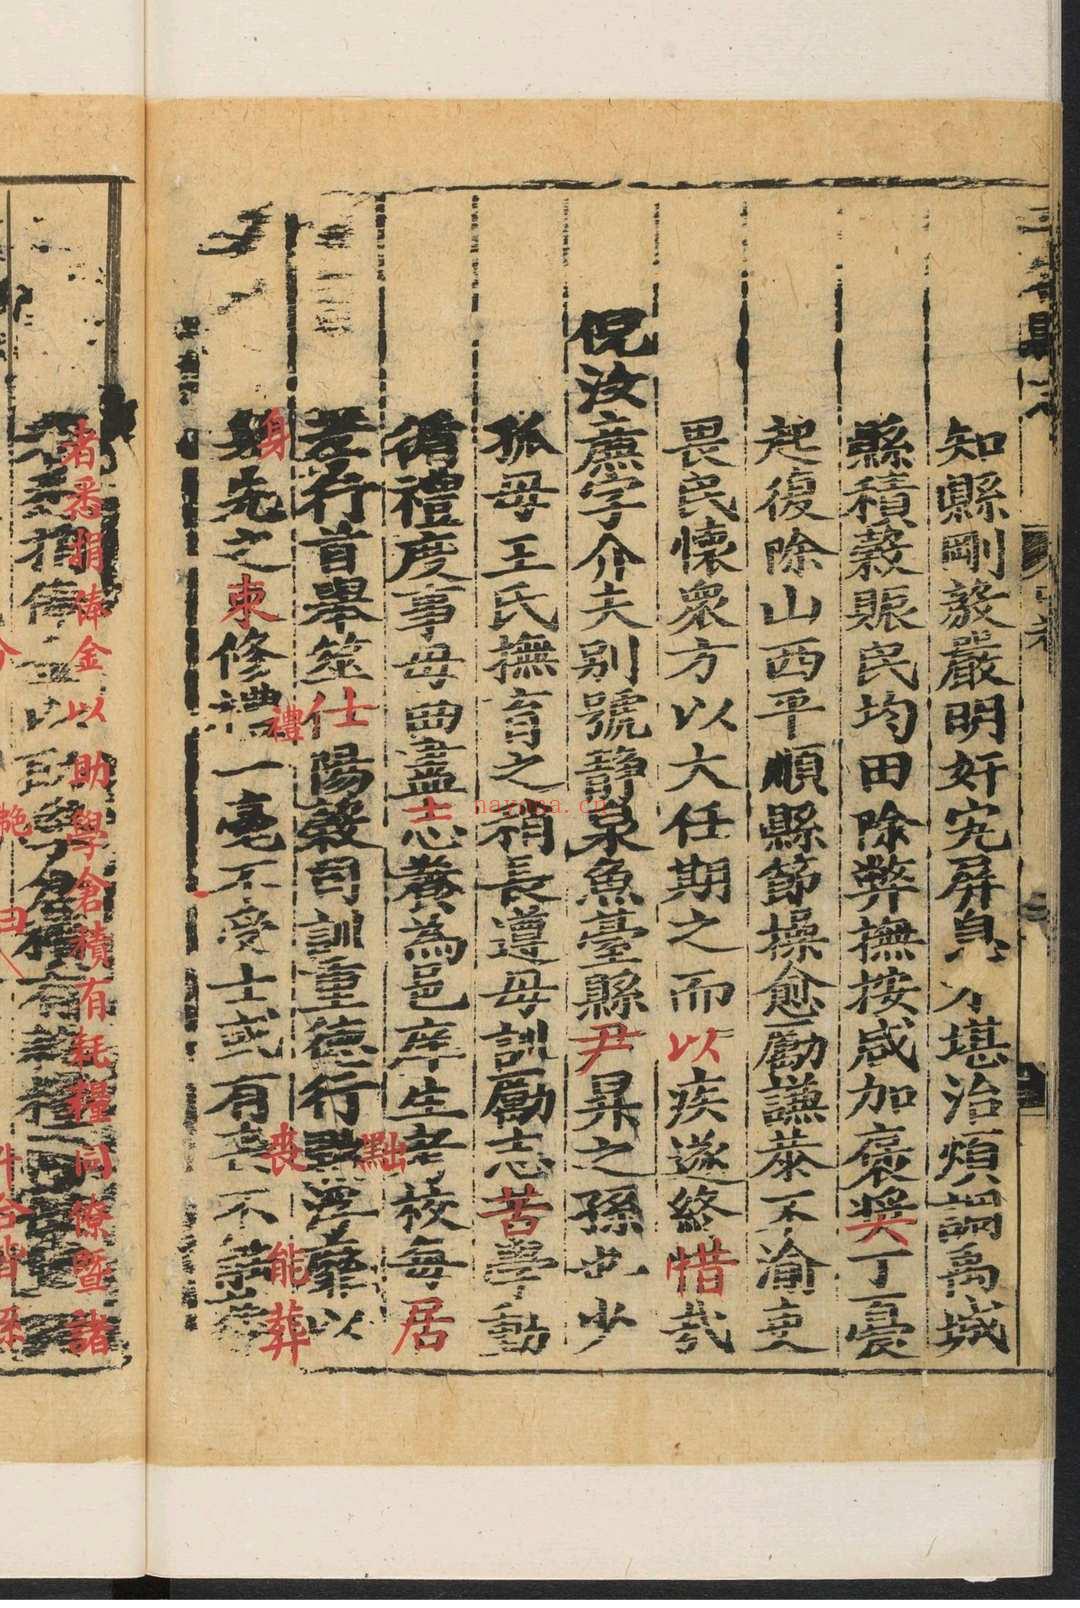 知縣剛毅嚴明奸宄屏息才堪治煩調禹城
縣積穀賑民均田除弊撫按咸加褒奬丁憂
起復除山西平順縣節操愈勵謙恭不渝吏
畏民懷衆方以大任期之而以疾遂終惜哉
倪汝廉字介夫别號靜泉魚臺縣尹昇之孫也少
孤母王氏撫育之稍長遵母訓勵志苦學動
循禮度事母曲盡志養為邑庠生考校每居
孝行首舉筮仕陽穀司訓重德行黜浮靡以
身先之束修禮一毫不受士或有喪不能葬
者悉捐俸金以助學倉積有耗糧同僚暨諸
nayona.cn